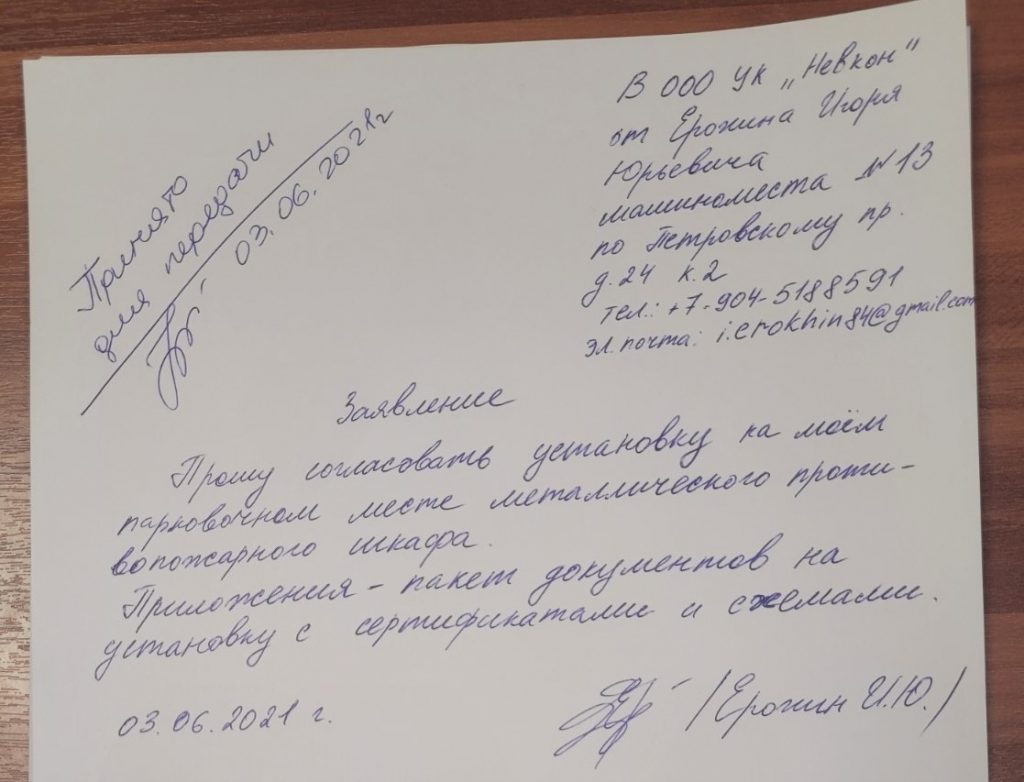 В ООО УК „Невкон"
от Ерохина Игоря
Юрьевича
машиноместа №13
по Петровскому пр.
д.24 к.2
тел.: +7-904-5188591
эл.почта: i.erokhin84@gmail.com
Принято
для передачи
03.06.2021г
Заявление
Прошу согласовать установку на моём
парковочном месте металлического проти-
вопожарного шкафа.
Приложения - пакет документов на
установку с сертификатами и схемами.
03.06.2021 г.
/Ерохин И.Ю./